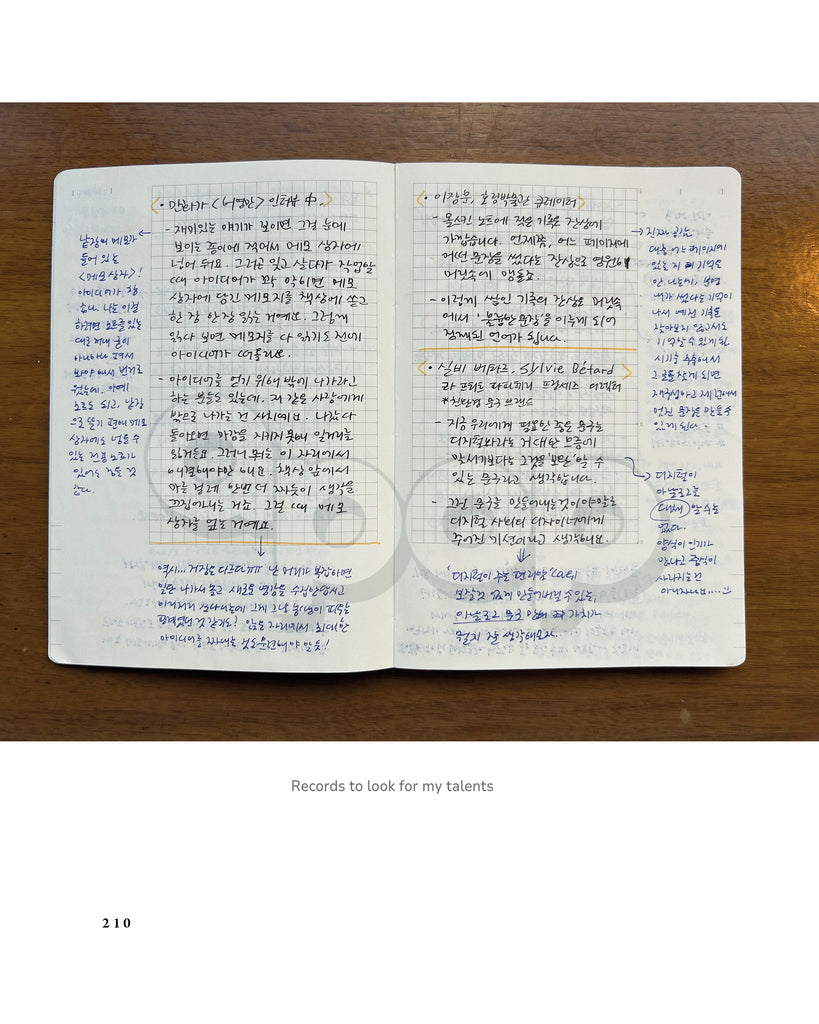 < • 만화가 <허영만> 인터뷰 中. >
- 재미있는 얘기가 보이면 그걸 눈에
보이는 종이에 적어서 메모 상자에
넣어 둬요. 그러곤 잊고 살다가 작업할
때 아이디어가 꽉 막히면 메모
상자에 담긴 메모지를 책상에 쏟고
한 장 한 장 읽는 거예요. 그렇게
읽다 보면 메모지를 다 읽기도 전에
아이디어가 떠올라요.
- 아이디어를 얻기 위해 밖에 나가라고
하는 분들도 있는데. 저 같은 사람에게
밖으로 나가는 건 사치예요. 나갔다
돌아오면 마감을 지키지 못해 일거리를
잃거든요. 그러니 뭐든 이 자리에서
해결해야만 해요. 책상 앞에서
마른 걸레 한번 더 짜듯이 생각을
끄집어내는 거죠. 그럴 때 메모
상자를 엎는 거예요.
낱장의 메모가
들어 있는
<메모 상자>!
아이디어가 참
좋다. 나는 이걸
하려면 노트를 있는
대로 꺼내 놓아
하나하나
봐야 해서 번거로
웠는데. 이렇게
노트도 되고, 낱장
으로 뜯기 편해 메모
상자에도 넣을 수
있는 전용 노트가
있어도 좋을 것
같다.
역시... 거장은 다르다ㅠㅠ 난 머리가 복잡하면
일단 나가서 놀고 새로운 영감을 수집한답시고
여기저기 쏘다니는데 그게 그냥 농땡이 피우는
핑계였던 것 같기도? 앉은 자리에서 최대한
아이디어를 짜내는 것도 훈련해야 할 듯!
< • 이장훈, 호림박물관 큐레이터 >
- 몰스킨 노트에 적은 기록은 잔상에
가깝습니다. 언제쯤, 어느 페이지에
어떤 문장을 썼다는 잔상으로 영원히
머릿속에 맴돌죠.
- 이렇게 쌓인 기록의 잔상은 머릿속
에서 '불분명한 문장'을 이루게 되어
정제된 언어가 됩니다.
< • 실비 베타르. Sylvie Bétard
라 트레드 파피에 프랑세즈 디렉터
*친환경 문구 브랜드 >
- 지금 우리에게 필요한 좋은 문구는
디지털화라는 거대한 흐름에
맞서기보다는 그것을 '보완'할 수
있는 문구라고 생각합니다.
- 그런 문구를 만들어내는 것이야말로
디지털 사회의 디자이너에게
주어진 미션이라고 생각해요.
'디지털이 주는 편리함' 따위
보잘것 없게 만들어버릴 수 있는,
아날로그 문구 만의 가치가
뭘지 잘 생각해보자.
진짜 공감.
대충 어느 페이지에
있는지 기억은
안 나는데, 분명
내가 썼다는 기억이
나서 예전 기록을
찾아보지 않고서도
기억할 수 있게 된
디지털이
아날로그를
대체 할 수는
없다.